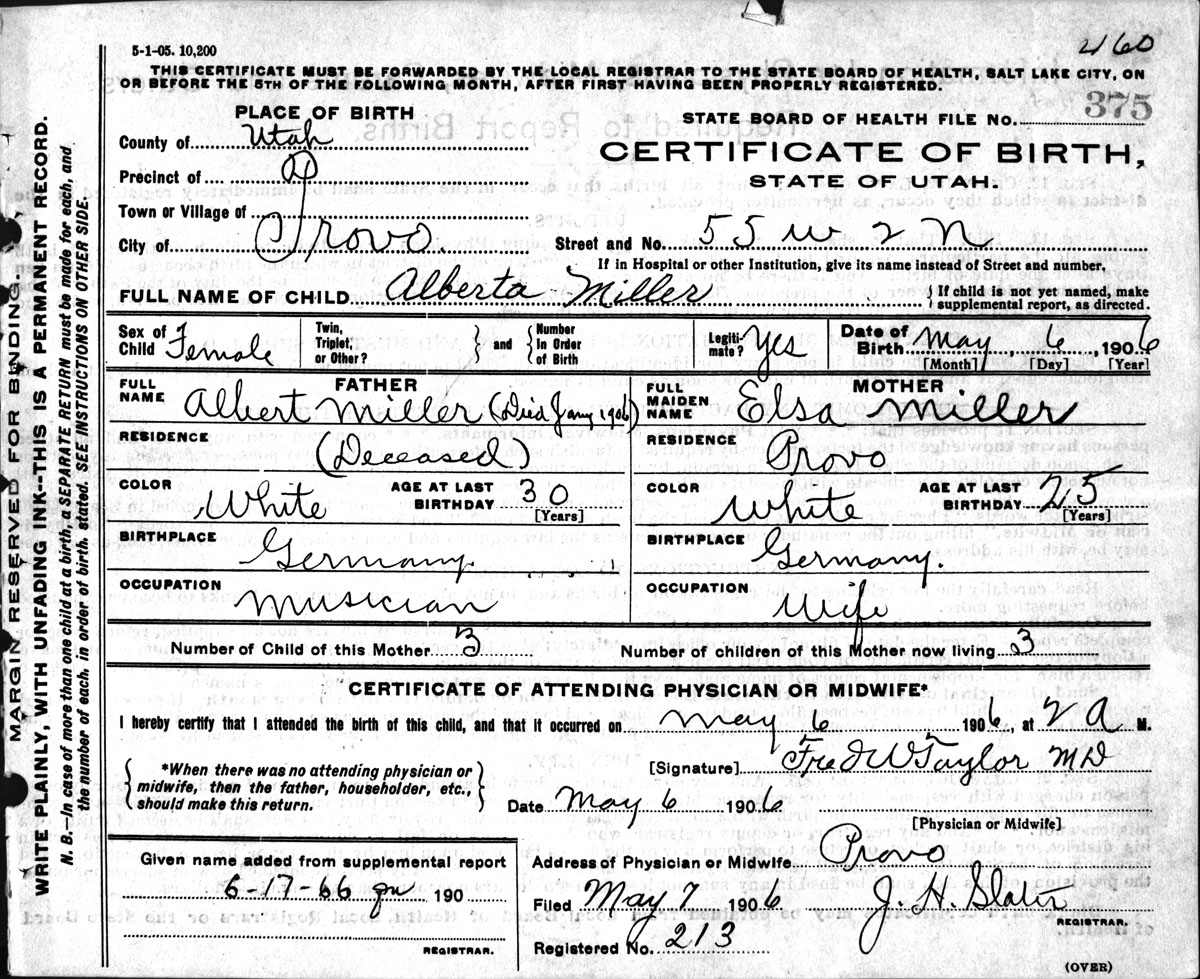 5-1-05. 10,200
460
THIS CERTIFICATE MUST BE FORWARDED BY THE LOCAL REGISTRAR TO THE STATE BOARD OF HEALTH, SALT LAKE CITY, ON
OR BEFORE THE 5TH OF THE FOLLOWING MONTH, AFTER FIRST HAVING BEEN PROPERLY REGISTERED.
375
PLACE OF BIRTH
STATE BOARD OF HEALTH FILE NO.
County of Utah
CERTIFICATE OF BIRTH,
Precinct of
STATE OF UTAH.
Town or Village of
City of Provo
Street and No. 55 W 2 N
If in Hospital or other Institution, give its name instead of Street and number.
FULL NAME OF CHILD Alberta Miller
{ If child is not yet named, make
supplemental report, as directed.
Sex of Child Female
Twin, Triplet, or Other? } and { Number In Order of Birth
Legiti-mate? Yes
Date of Birth May 6, 1906
[Month] [Day] [Year]
FATHER
FULL NAME Albert Miller (Died Jany 1906)
MOTHER
FULL MAIDEN NAME Elsa Miller
RESIDENCE (Deceased)
RESIDENCE Provo
COLOR White AGE AT LAST BIRTHDAY 30 [Years]
COLOR White AGE AT LAST BIRTHDAY 25 [Years]
BIRTHPLACE Germany
BIRTHPLACE Germany.
OCCUPATION Musician
OCCUPATION Wife
Number of Child of this Mother 3
Number of children of this Mother now living 3
CERTIFICATE OF ATTENDING PHYSICIAN OR MIDWIFE*
I hereby certify that I attended the birth of this child, and that it occurred on May 6 1906, at 2 A M.
{ *When there was no attending physician or
midwife, then the father, householder, etc.,
should make this return. }
[Signature] Fred W Taylor MD
Date May 6 1906
[Physician or Midwife]
Given name added from supplemental report
6-17-66 190
REGISTRAR.
Address of Physician or Midwife Provo
Filed May 7 1906 J. H. Slater
REGISTRAR.
Registered No. 213
(OVER)
MARGIN RESERVED FOR BINDING.
WRITE PLAINLY, WITH UNFADING INK--THIS IS A PERMANENT RECORD.
N. B.—In case of more than one child at a birth, a SEPARATE RETURN must be made for each, and
the number of each, in order of birth, stated. SEE INSTRUCTIONS ON OTHER SIDE.